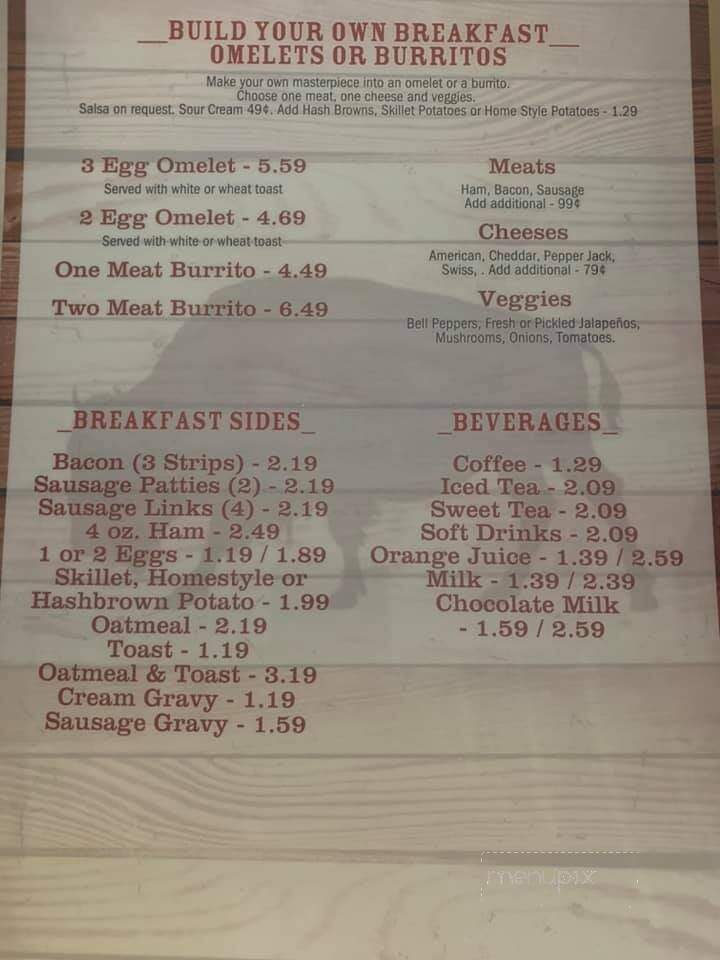 __BUILD YOUR OWN BREAKFAST__
OMELETS OR BURRITOS
Make your own masterpiece into an omelet or a burrito.
Choose one meat, one cheese and veggies.
Salsa on request. Sour Cream 49¢. Add Hash Browns, Skillet Potatoes or Home Style Potatoes - 1.29
3 Egg Omelet - 5.59
Served with white or wheat toast
2 Egg Omelet - 4.69
Served with white or wheat toast
One Meat Burrito - 4.49
Two Meat Burrito - 6.49
Meats
Ham, Bacon, Sausage
Add additional - 99¢
Cheeses
American, Cheddar, Pepper Jack,
Swiss, . Add additional - 79¢
Veggies
Bell Peppers, Fresh or Pickled Jalapeños,
Mushrooms, Onions, Tomatoes.
_BREAKFAST SIDES_
Bacon (3 Strips) - 2.19
Sausage Patties (2) - 2.19
Sausage Links (4) - 2.19
4 oz. Ham - 2.49
1 or 2 Eggs - 1.19 / 1.89
Skillet, Homestyle or
Hashbrown Potato - 1.99
Oatmeal - 2.19
Toast - 1.19
Oatmeal & Toast - 3.19
Cream Gravy - 1.19
Sausage Gravy - 1.59
_BEVERAGES_
Coffee - 1.29
Iced Tea - 2.09
Sweet Tea - 2.09
Soft Drinks - 2.09
Orange Juice - 1.39 / 2.59
Milk - 1.39 / 2.39
Chocolate Milk
- 1.59 / 2.59
menupix